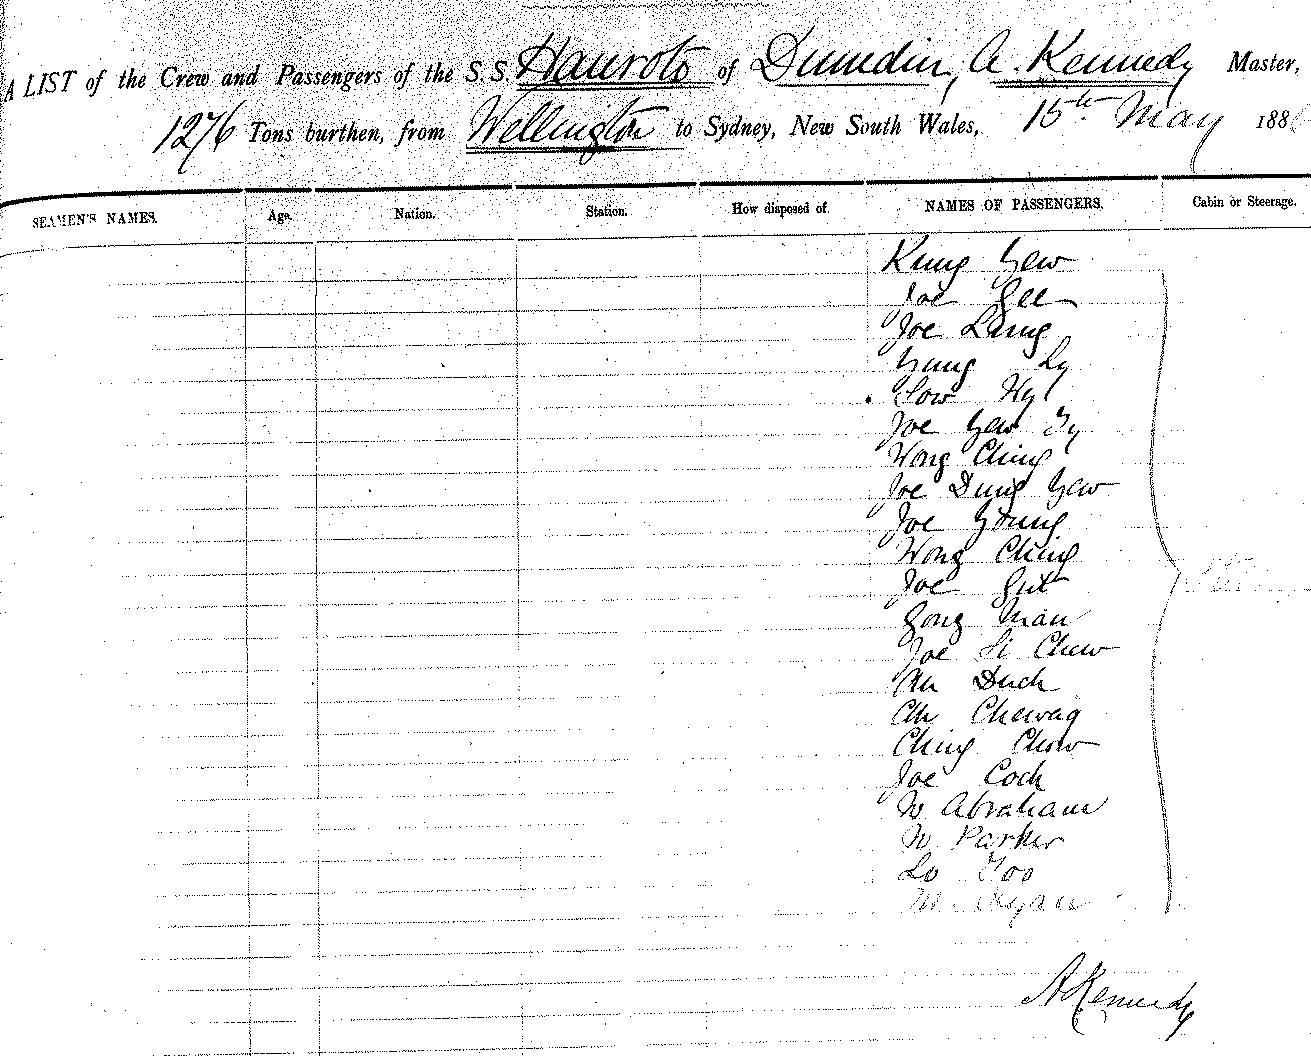 A LIST of the Crew and Passengers of the S.S. Hauroto of Dunedin, A. Kennedy Master,
1276 Tons burthen, from Wellington to Sydney, New South Wales, 15th May 188
SEAMEN'S NAMES. Age. Nation. Station. How disposed of. NAMES OF PASSENGERS. Cabin or Steerage.
Kung Yew
Joe Gee
Joe Lung
Yung Ly
Low Hy
Joe Yew Ty
Wong Ching
Joe Dung Yew
Joe Young
Wong Ching
Joe Gut
Gong Man
Joe Si Chew
Ah Duck
Ah Chewag
Ching Chow
Joe Cock
W Abraham
W Parker
Lo Foo
M. Ryan
A Kennedy